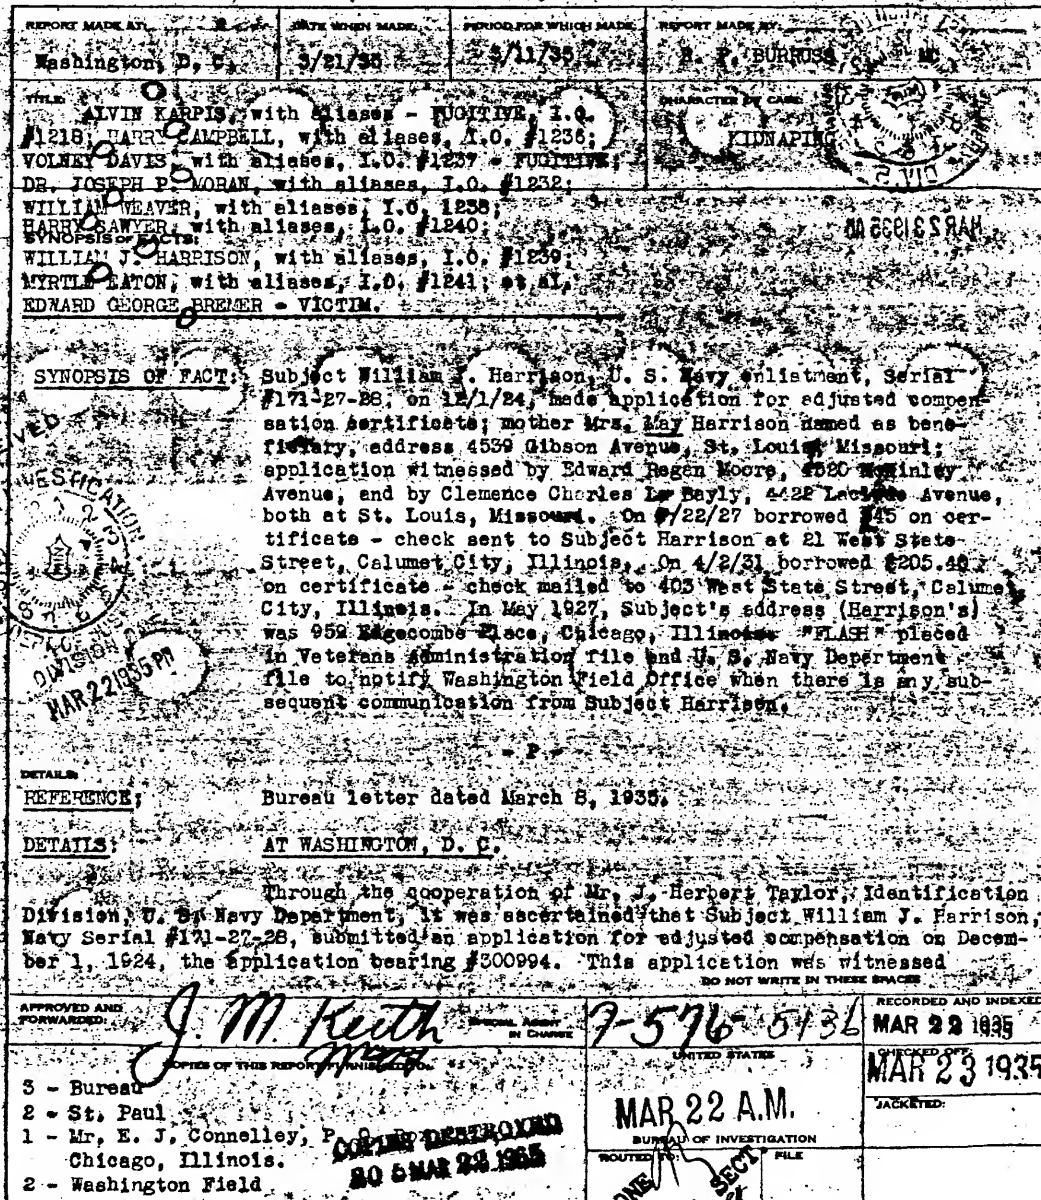 REPORT MADE AT: DATE WHEN MADE: PERIOD FOR WHICH MADE REPORT MADE BY:
Washington, D. C. 3/21/35 3/11/35 R. P. BURRUSS MC
TITLE: CHARACTER OF CASE:
ALVIN KARPIS, with aliases - FUGITIVE, I.O.
#1218; HARRY CAMPBELL, with aliases, I.O. #1236; KIDNAPING
VOLNEY DAVIS, with aliases, I.O. #1237 - FUGITIVE;
DR. JOSEPH P. MORAN, with aliases, I.O. #1232;
WILLIAM WEAVER, with aliases, I.O. 1238;
HARRY SAWYER, with aliases, I.O. #1240;
MAR 23 1935 AM
SYNOPSIS OF FACTS:
WILLIAM J. HARRISON, with aliases, I.O. #1239;
MYRTLE EATON, with aliases, I.O. #1241; et al.
EDWARD GEORGE BREMER - VICTIM.
SYNOPSIS OF FACT: Subject William J. Harrison, U. S. Navy enlistment, Serial
#171-27-28, on 12/1/24, made application for adjusted compen-
sation certificate; mother Mrs. May Harrison named as bene-
ficiary, address 4539 Gibson Avenue, St. Louis, Missouri;
application witnessed by Edward Regen Moore, 4520 McKinley
Avenue, and by Clemence Charles Le Bayly, 4422 Laclede Avenue,
both at St. Louis, Missouri. On /22/27 borrowed $45 on cer-
tificate - check sent to Subject Harrison at 21 West State
Street, Calumet City, Illinois. On 4/2/31 borrowed $205.40
on certificate - check mailed to 403 West State Street, Calumet
City, Illinois. In May 1927, Subject's address (Harrison's)
was 952 Edgecombe Place, Chicago, Illinois. "FLASH" placed
in Veterans Administration file and U. S. Navy Department
file to notify Washington Field Office when there is any sub-
sequent communication from Subject Harrison.
DIVISION
MAR 22 1935 PM
- P -
DETAILS:
REFERENCE: Bureau letter dated March 8, 1935.
DETAILS: AT WASHINGTON, D. C.
Through the cooperation of Mr. J. Herbert Taylor, Identification
Division, U. S. Navy Department, it was ascertained that Subject William J. Harrison,
Navy Serial #171-27-28, submitted an application for adjusted compensation on Decem-
ber 1, 1924, the application bearing #300994. This application was witnessed
DO NOT WRITE IN THESE SPACES
APPROVED AND
FORWARDED: J. M. Keith SPECIAL AGENT
IN CHARGE 7-576-5136 RECORDED AND INDEXED
MAR 22 1935
COPIES OF THIS REPORT FURNISHED TO: UNITED STATES CHECKED OFF:
MAR 23 1935
3 - Bureau
2 - St. Paul MAR 22 A.M. JACKETED:
1 - Mr. E. J. Connelley, P. O. Box
Chicago, Illinois.
2 - Washington Field
COPIES DESTROYED
MAR 22 1965
BUREAU OF INVESTIGATION
ROUTED TO: FILE
ONE SECT